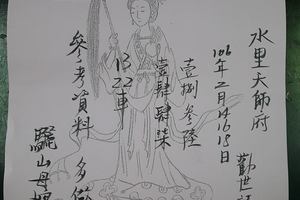 水里天師府
勸世
106年2月14.16.18日
壹捌參陸
壹肆肆柒
13
22車
參考資料
多做
驪山母